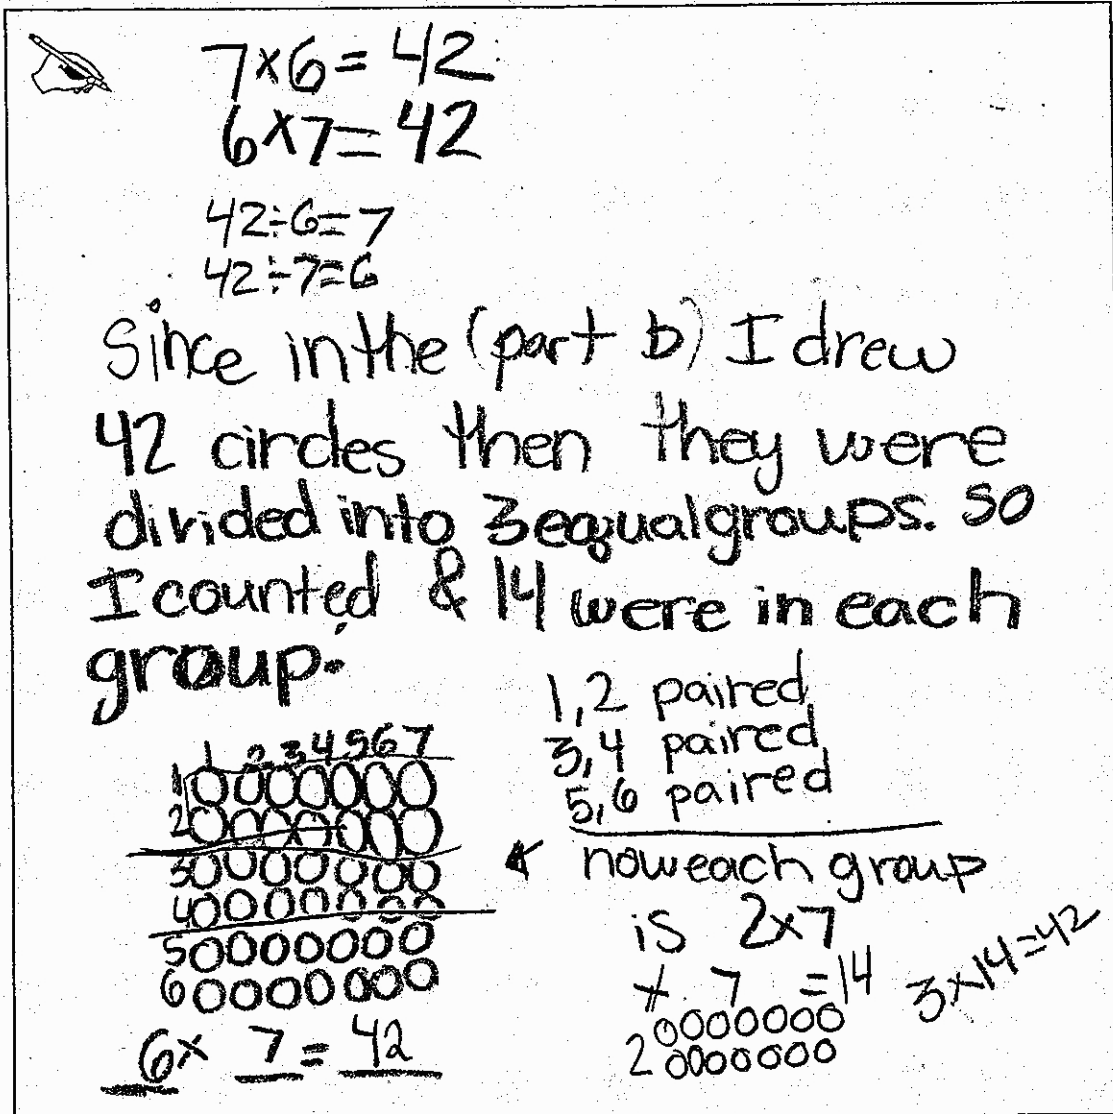 7×6=42
6×7=42
42÷6=7
42÷7=6
Since in the (part b) I drew
42 circles then they were
divided into 3 equal groups. So
I counted & 14 were in each
group.
1,2 paired
3,4 paired
5,6 paired
now each group
is 2×7
× 7 =14
2
3×14=42
1 2 3 4 5 6 7
1
2
3
4
5
6
6× 7 = 42